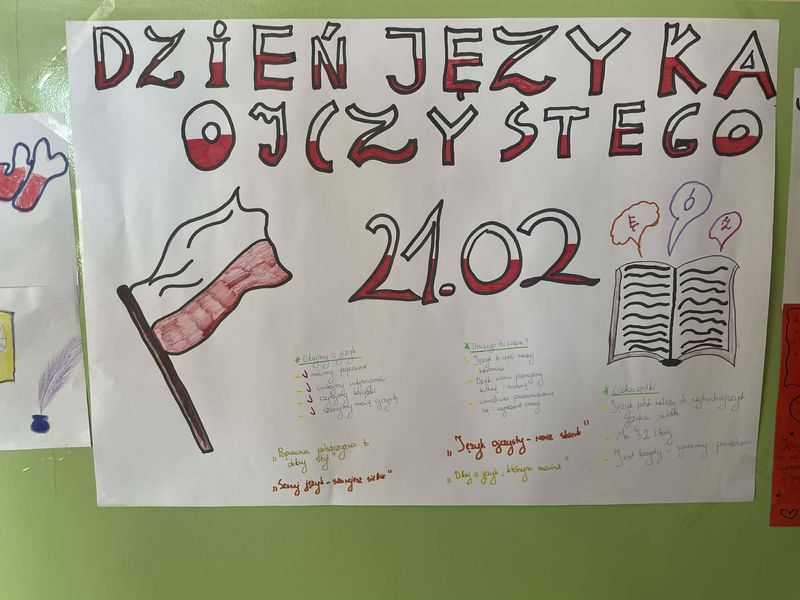 DZIEŃ JĘZYKA
OJCZYSTEGO
21.02
Ę Ó Ż
* Dbajmy o język
- mówmy poprawnie
- unikajmy
- czytajmy książki
- szanujmy mowę ojczystą
„Poprawna polszczyzna to
dobry styl"
„Szanuj język - szanujesz siebie"
* Dlaczego to ważne?
- Język to część naszej
- Dzięki niemu poznajemy
kulturę i historię
- Umożliwia porozumiewanie
się i wyrażanie emocji
„Język ojczysty - nasz skarb"
„Dbaj o język, którym mówisz"
* Ciekawostki
- Język polski należy do najtrudniejszych
języków świata
- Ma 32 litery
- Jest bogaty w synonimy